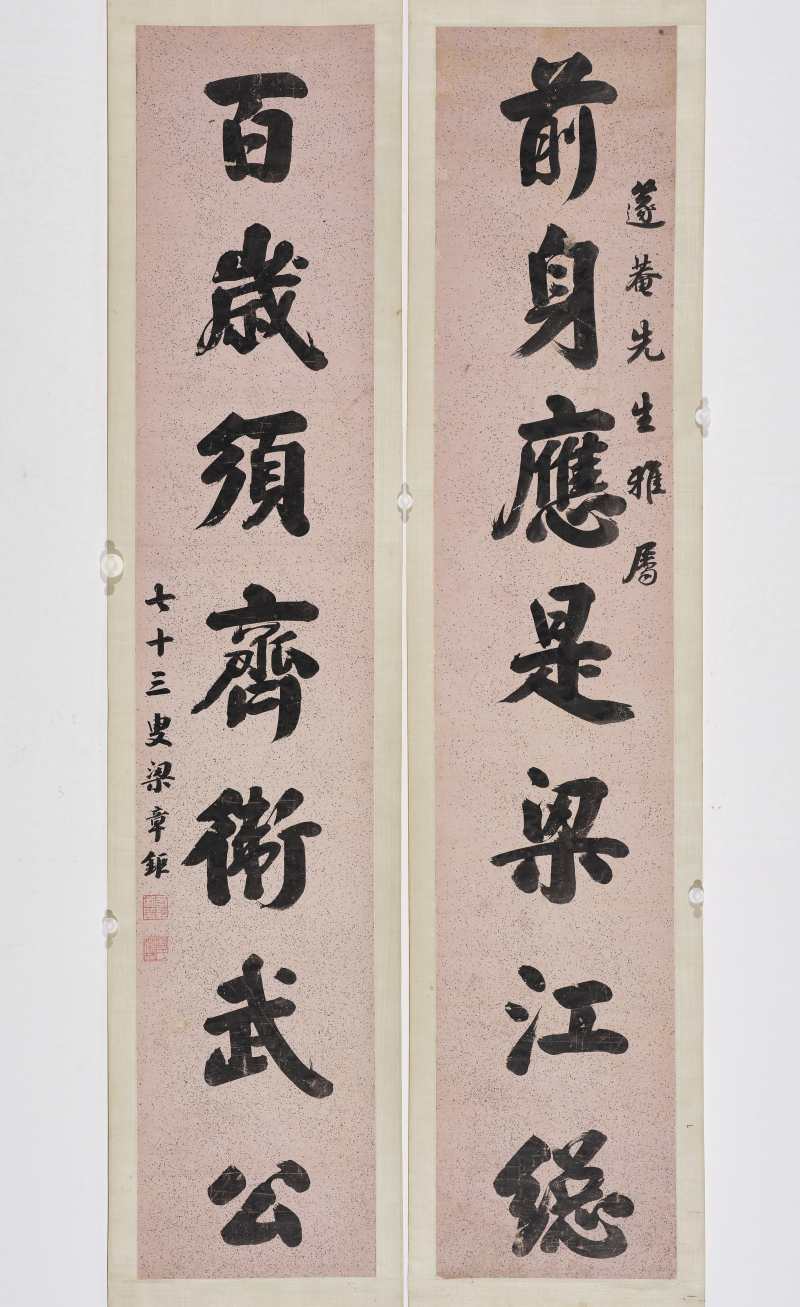 前身應是梁江總
蓬菴先生雅屬
百歲須齊衛武公
七十三叟梁章鉅